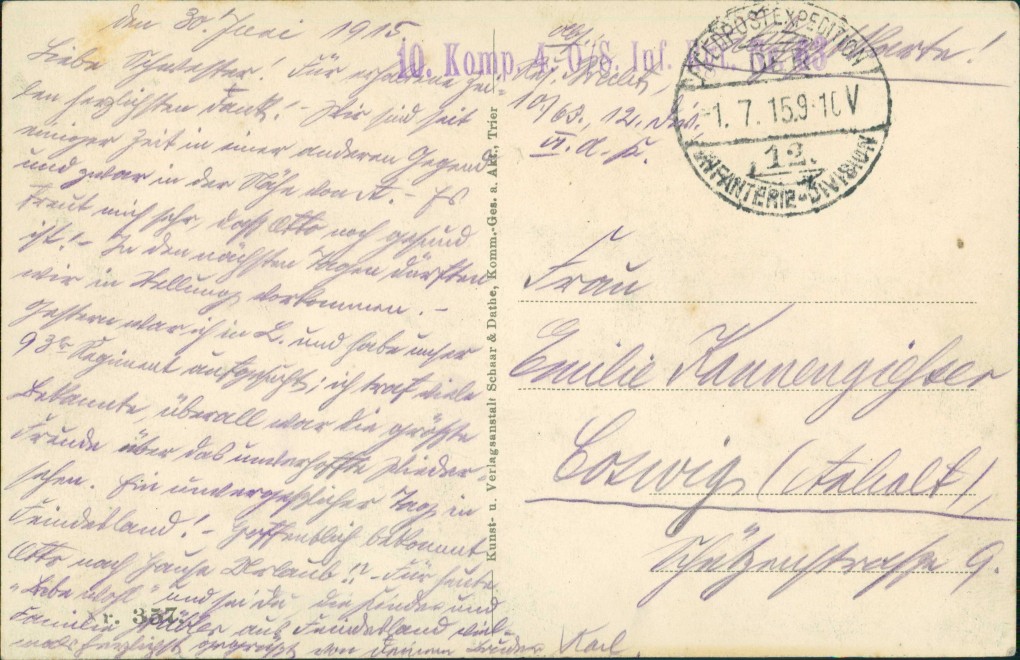 den 30. Juni 1915.
Liebe Schwester! Für erhaltene Zei
len herzlichsten Dank! - Wir sind seit
einiger Zeit in einer anderen Gegend
und zwar in der Nähe von A. - Es
freut mich sehr, daß Otto noch gesund
ist! - In den nächsten Tagen dürften
wir in Stellung vorkommen. -
Gestern war ich in L. und habe unser
93er Regiment aufgesucht; ich traf viele
Bekannte, überall war die größte
Freude über das unverhoffte Wieder
sehen. Ein unvergeßlicher Tag in
Feindesland! - Hoffentlich bekommt
Otto nach Hause Urlaub!! - Für heute
"Lebe wohl" und sei du, die Kinder und
Familie aus Feindesland viel
mals herzlichst gegrüßt von Deinem Bruder Karl.
Nr. 357.
Kunst- u. Verlagsanstalt Schaar & Dathe, Komm.-Ges. a. Akt., Trier
10. Komp. 4. O/S. Inf. Rgt. Nr. 63
10/63, 12. Div.
VI. A. K.
FELDPOSTEXPEDITION
-1. 7. 15 9-10 V
12.
INFANTERIE-DIVISION
Frau
Emilie Kannengießer
Coswig (Anhalt)
Schützenstrasse 9.